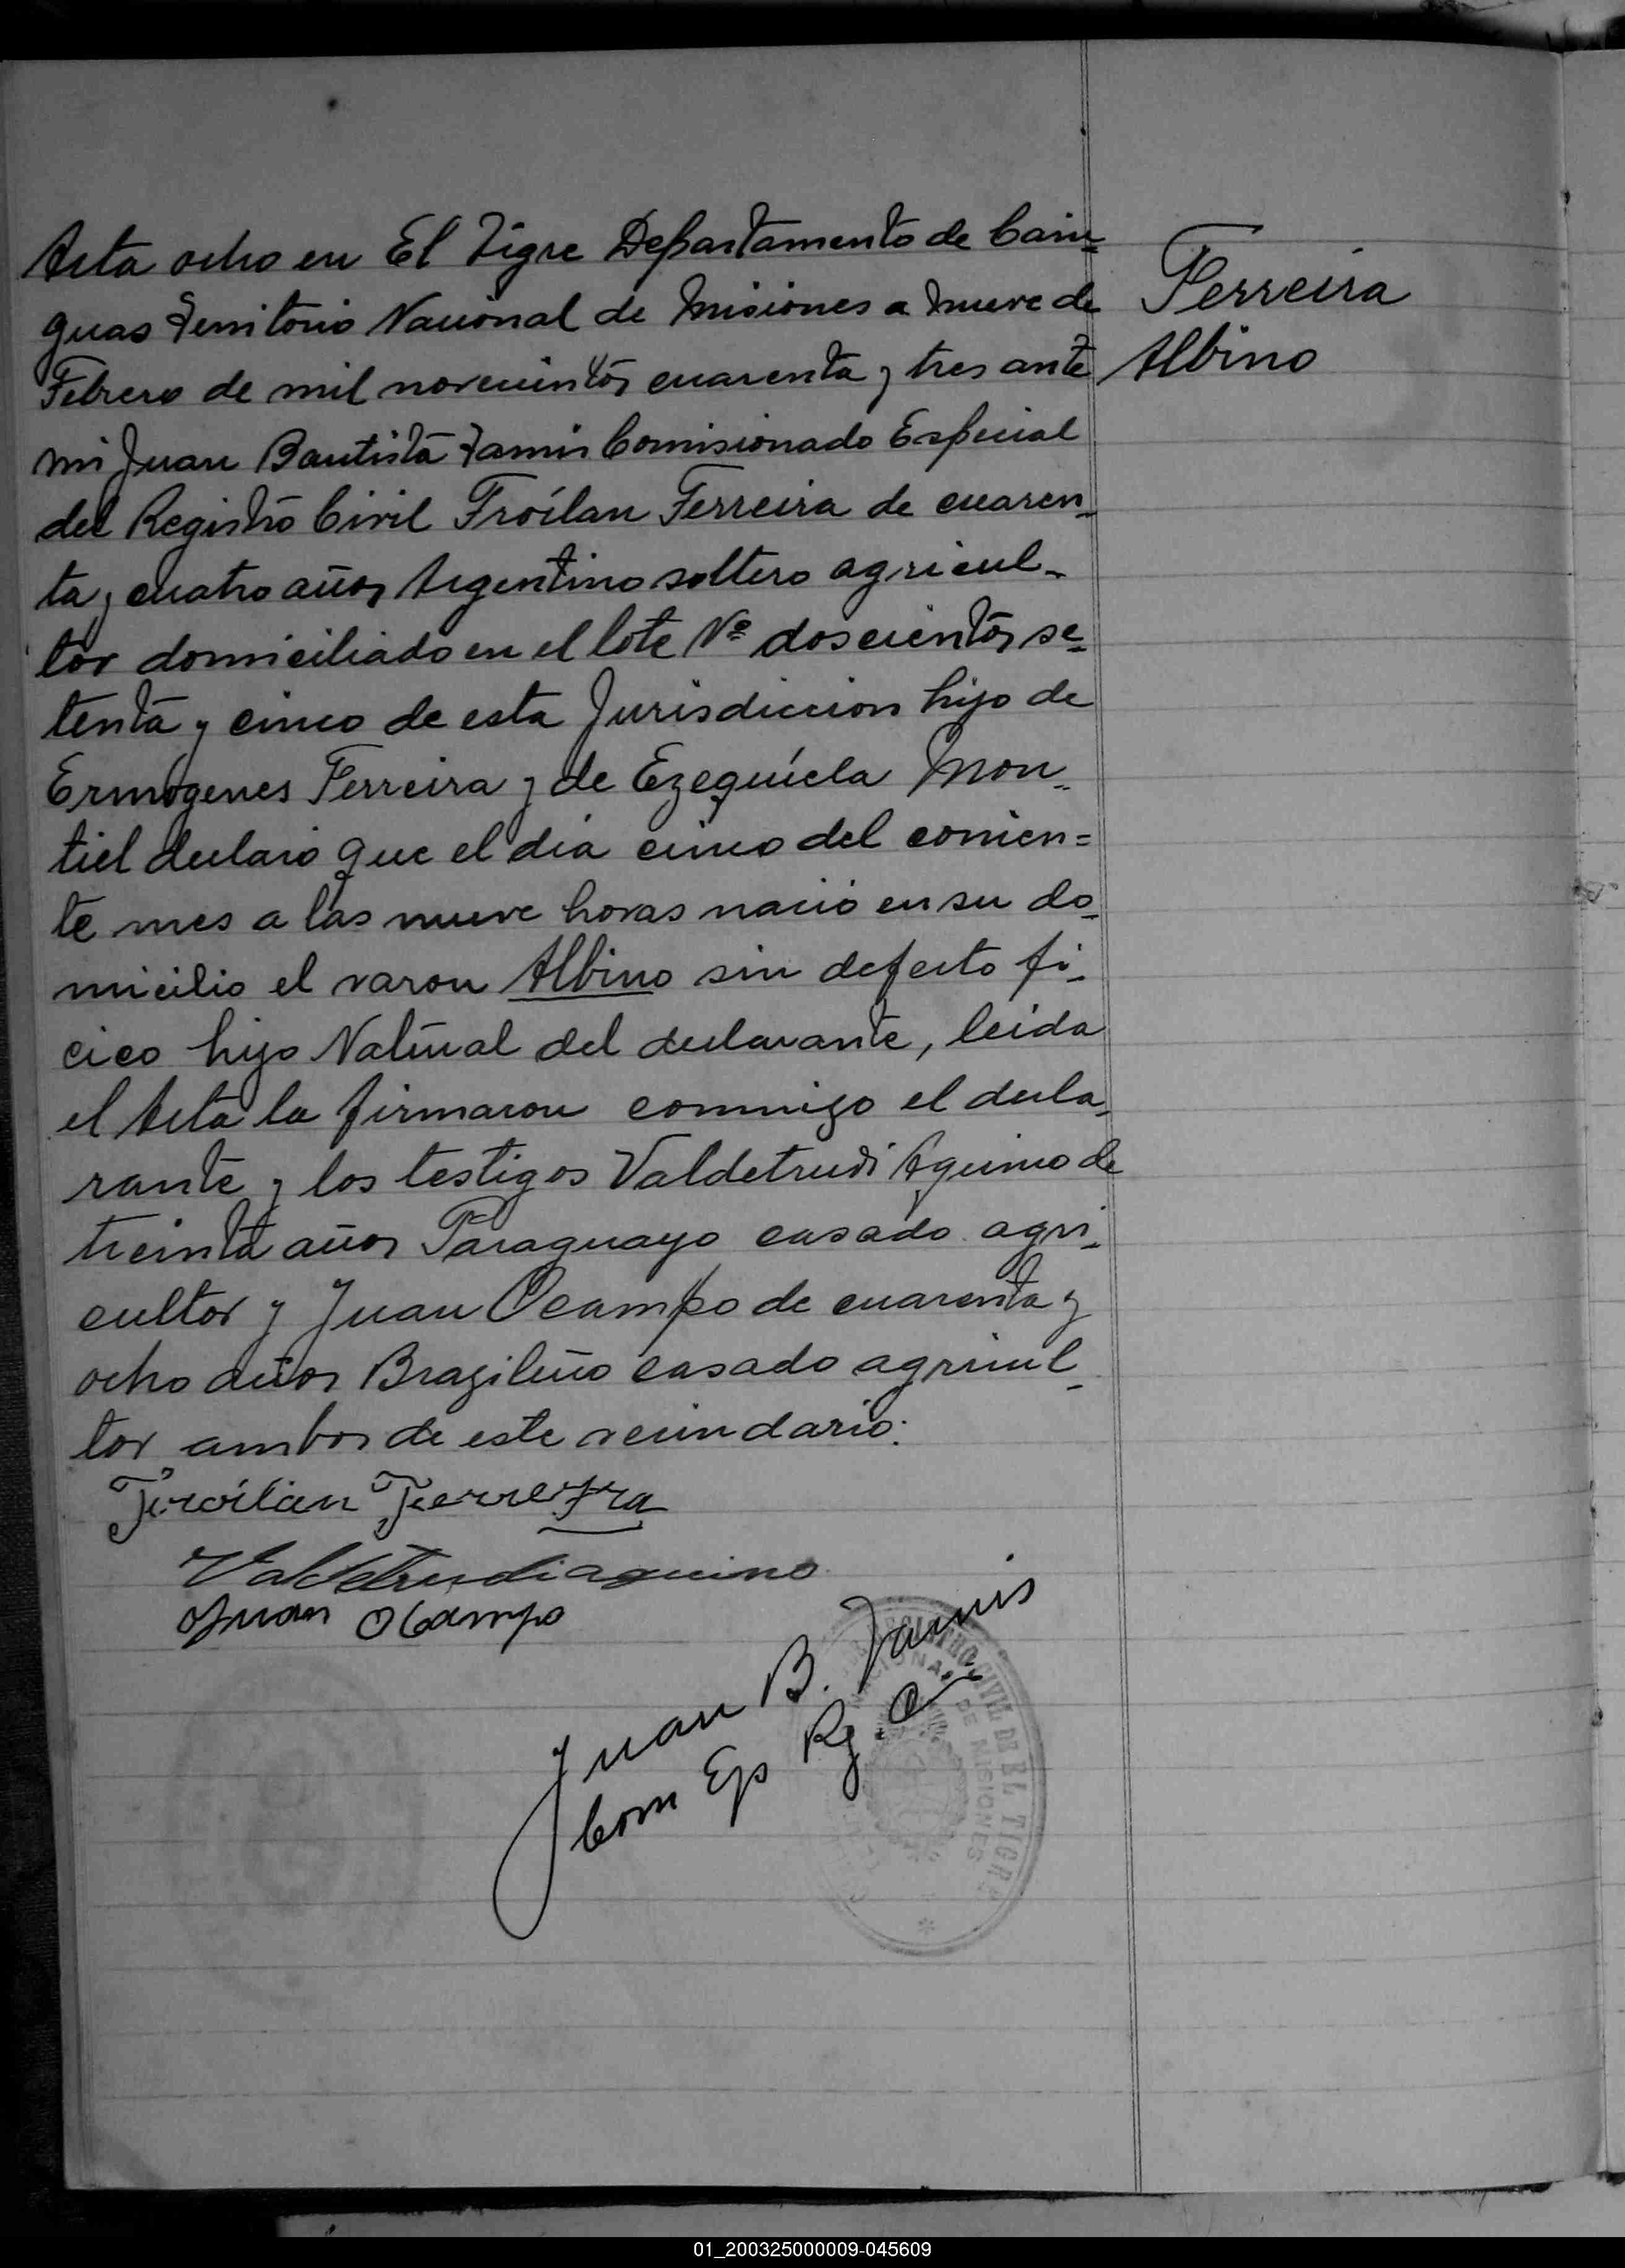 Acta ocho en El Tigre Departamento de Cain-
guas Territorio Nacional de Misiones a nueve de
Febrero de mil novecientos cuarenta y tres ante
mi Juan Bautista Comisionado Especial
del Registro Civil Froílan Ferreira de cuaren-
ta y cuatro años Argentino soltero agricul-
tor domiciliado en el lote Nº doscientos se-
tenta y cinco de esta Jurisdiccion hijo de
Ermógenes Ferreira y de Ezequíela Mon-
tiel declaro que el día cinco del corrien=
te mes a las nueve horas nació en su do-
micilio el varon Albino sin defecto fi-
cico hijo Natural del declarante, leida
el Acta la firmaron conmigo el decla-
rante y los testigos Valdetrudi Aquino de
treinta años Paraguayo casado agri-
cultor y Juan Ocampo de cuarenta y
ocho años Brazileño casado agricul-
tor ambos de este vecindario.
Ferreira
Albino
Froilan Ferreira
Valdetrudi aquino
Juan Ocampo
Juan B.
Com Esp Rg. C
REGISTRO CIVIL DE EL TIGRE
NACIONAL DE MISIONES
01_200325000009-045609